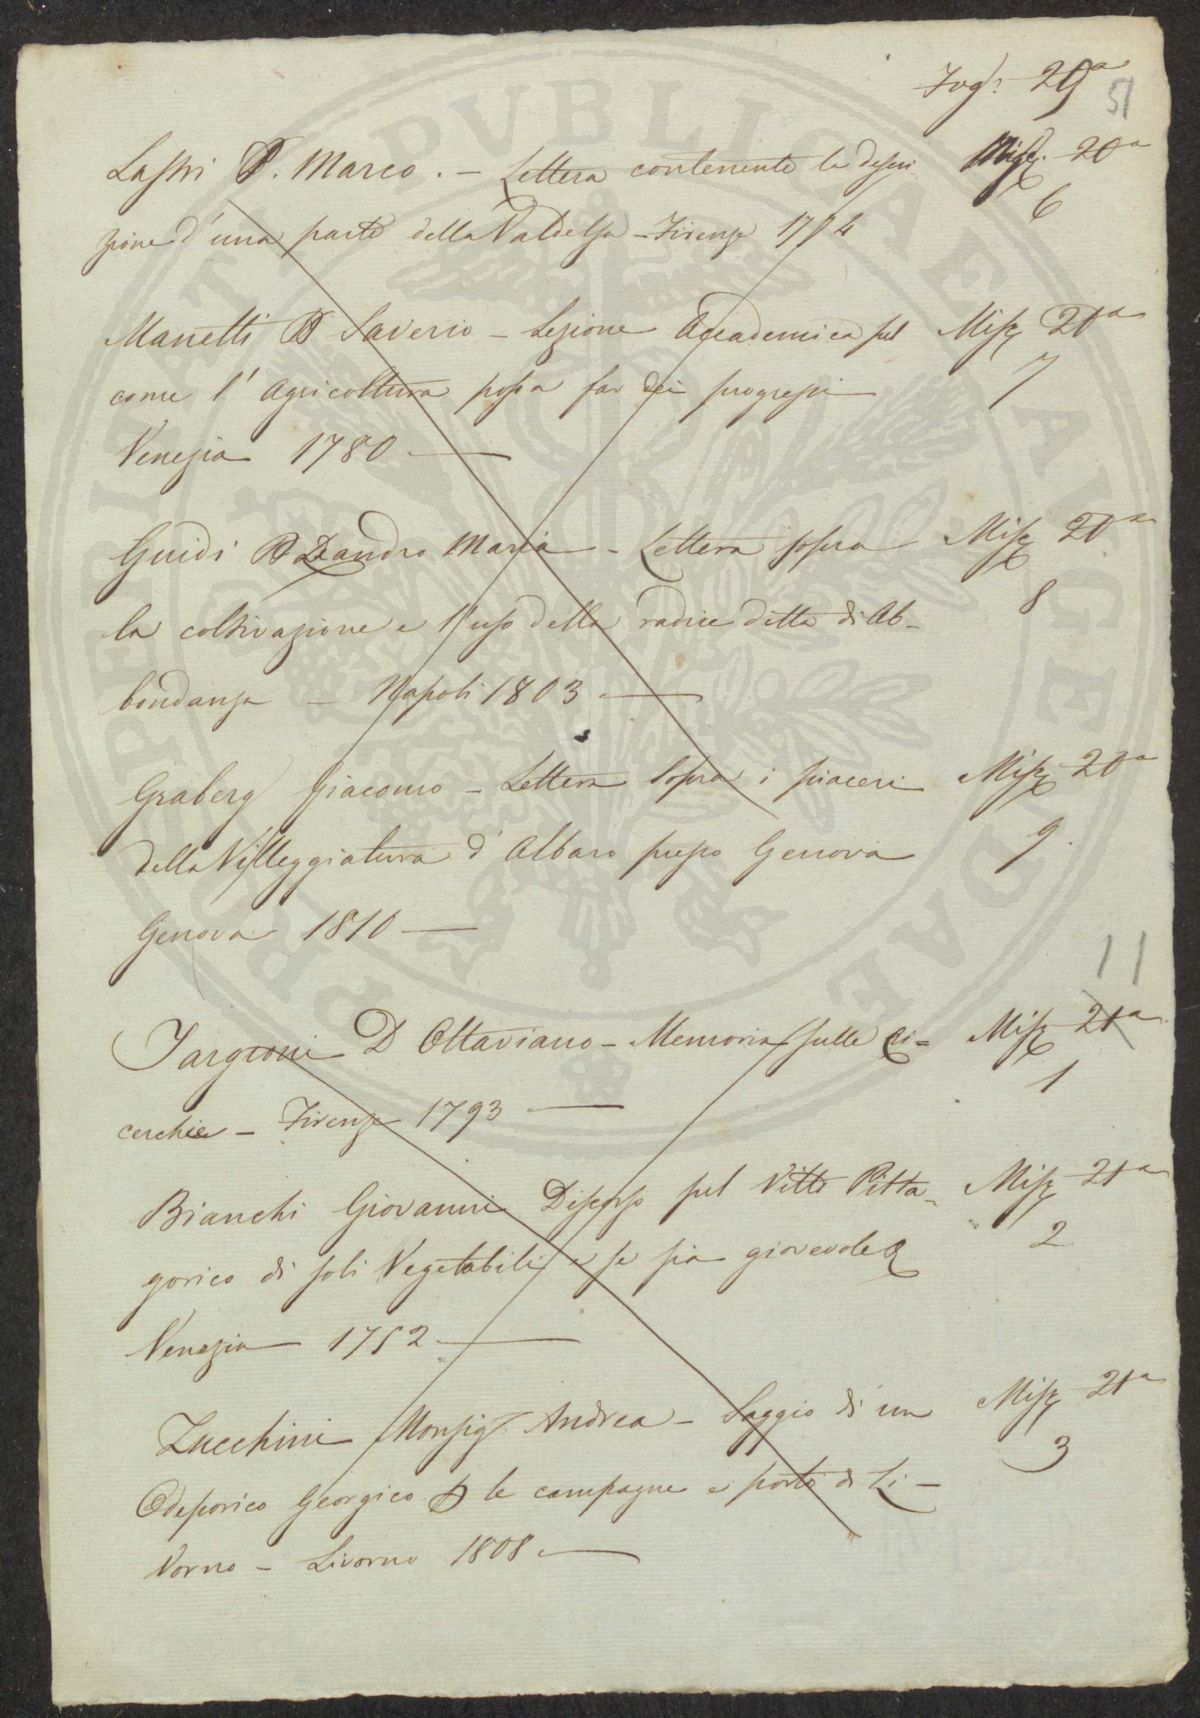 Fog: 29ª
51
Lastri P. Marco. – Lettera contenente la descri-
Misc. 20ª
zione d'una parte della Valdelsa – Firenze 1774
6
Manetti D Saverio – Lezione Accademica sul
Misc 20ª
come l'Agricoltura possa far dei progressi
7
Venezia 1780 —
Guidi Leandro Maria – Lettera sopra
Misc 20ª
la coltivazione e l'uso della radice detta di Ab-
8
bondanza – Napoli 1803 —
Graberg Giacomo – Lettera sopra i piaceri
Misc 20ª
della Villeggiatura d'Albaro presso Genova
9.
Genova 1810 —
11
Targioni D Ottaviano – Memoria sulle Ci=
Misc 21ª
cerchie – Firenze 1793 —
1
Bianchi Giovanni Discorso sul Vitto Pitta-
Misc 21ª
gorico di soli Vegetabili e se sia giovevole &
2
Venezia 1752 —
Zucchini Monsig. Andrea – Saggio di un
Misc 21ª
Odeporico Georgico p le campagne e porto di Li-
3
vorno – Livorno 1808 —
PUBLICAE AUCE DAE